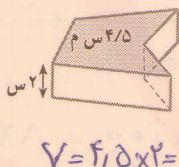 ۴/۵ س م
۲ س
V = ۴,۵×۲=